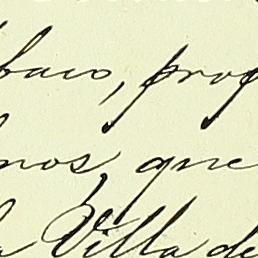 baco, prop
nos, que
la Villa de